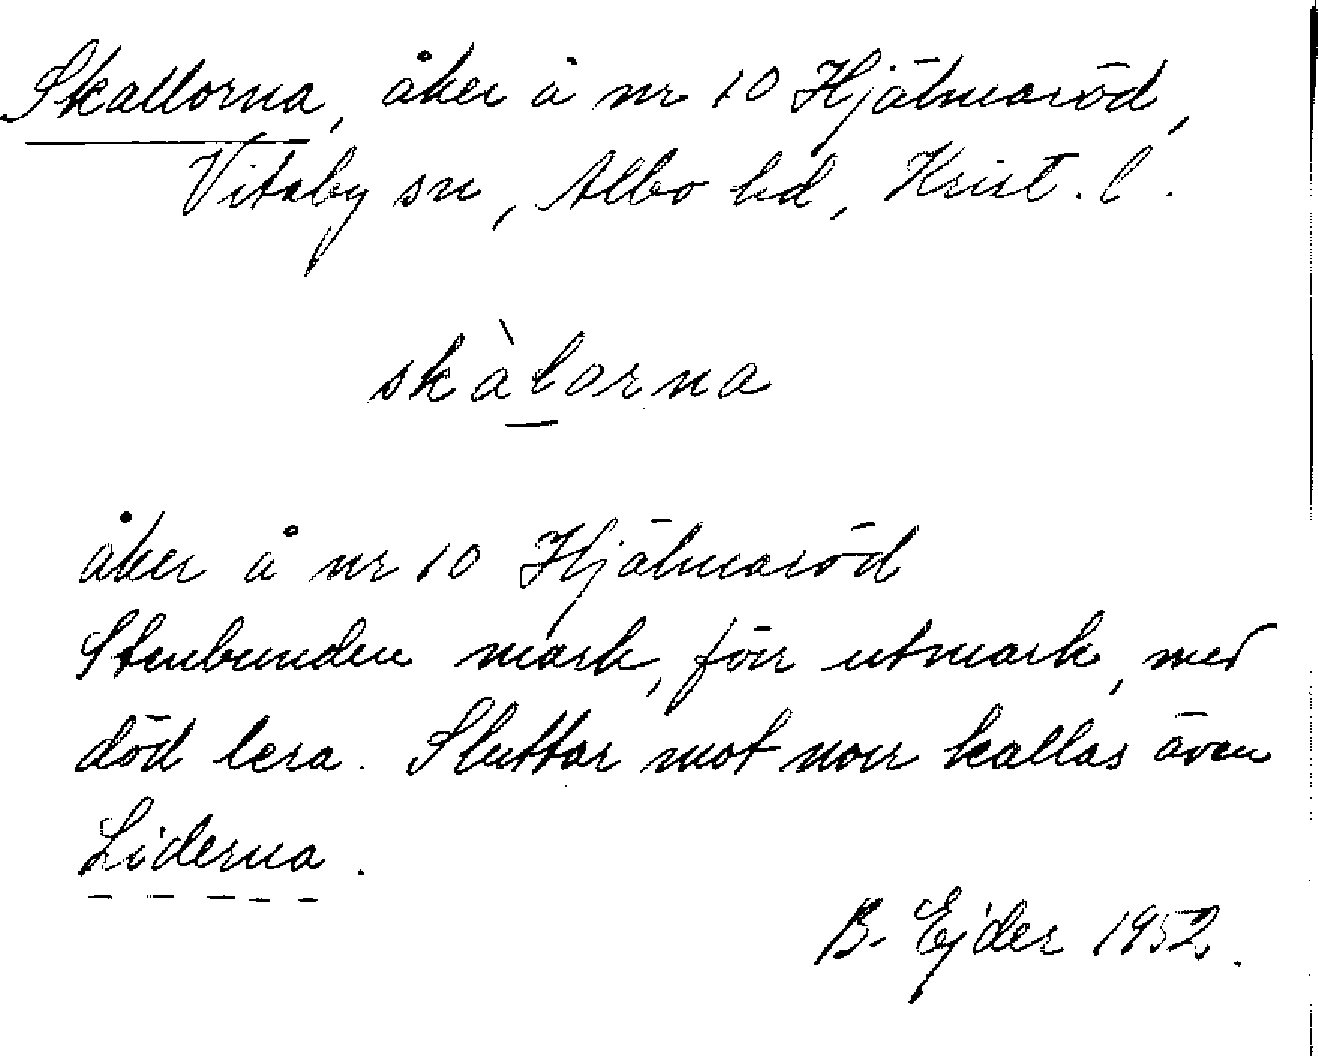 Skallorna, åker å nr 10 Hjälmaröd,
Vitaby sn, Albo hd, Krist. l.
skàlorna
åker å nr 10 Hjälmaröd
Stenbunden mark, förr utmark, med
död lera. Sluttar mot norr kallas även
Liderna.
B. Ejder 1952.